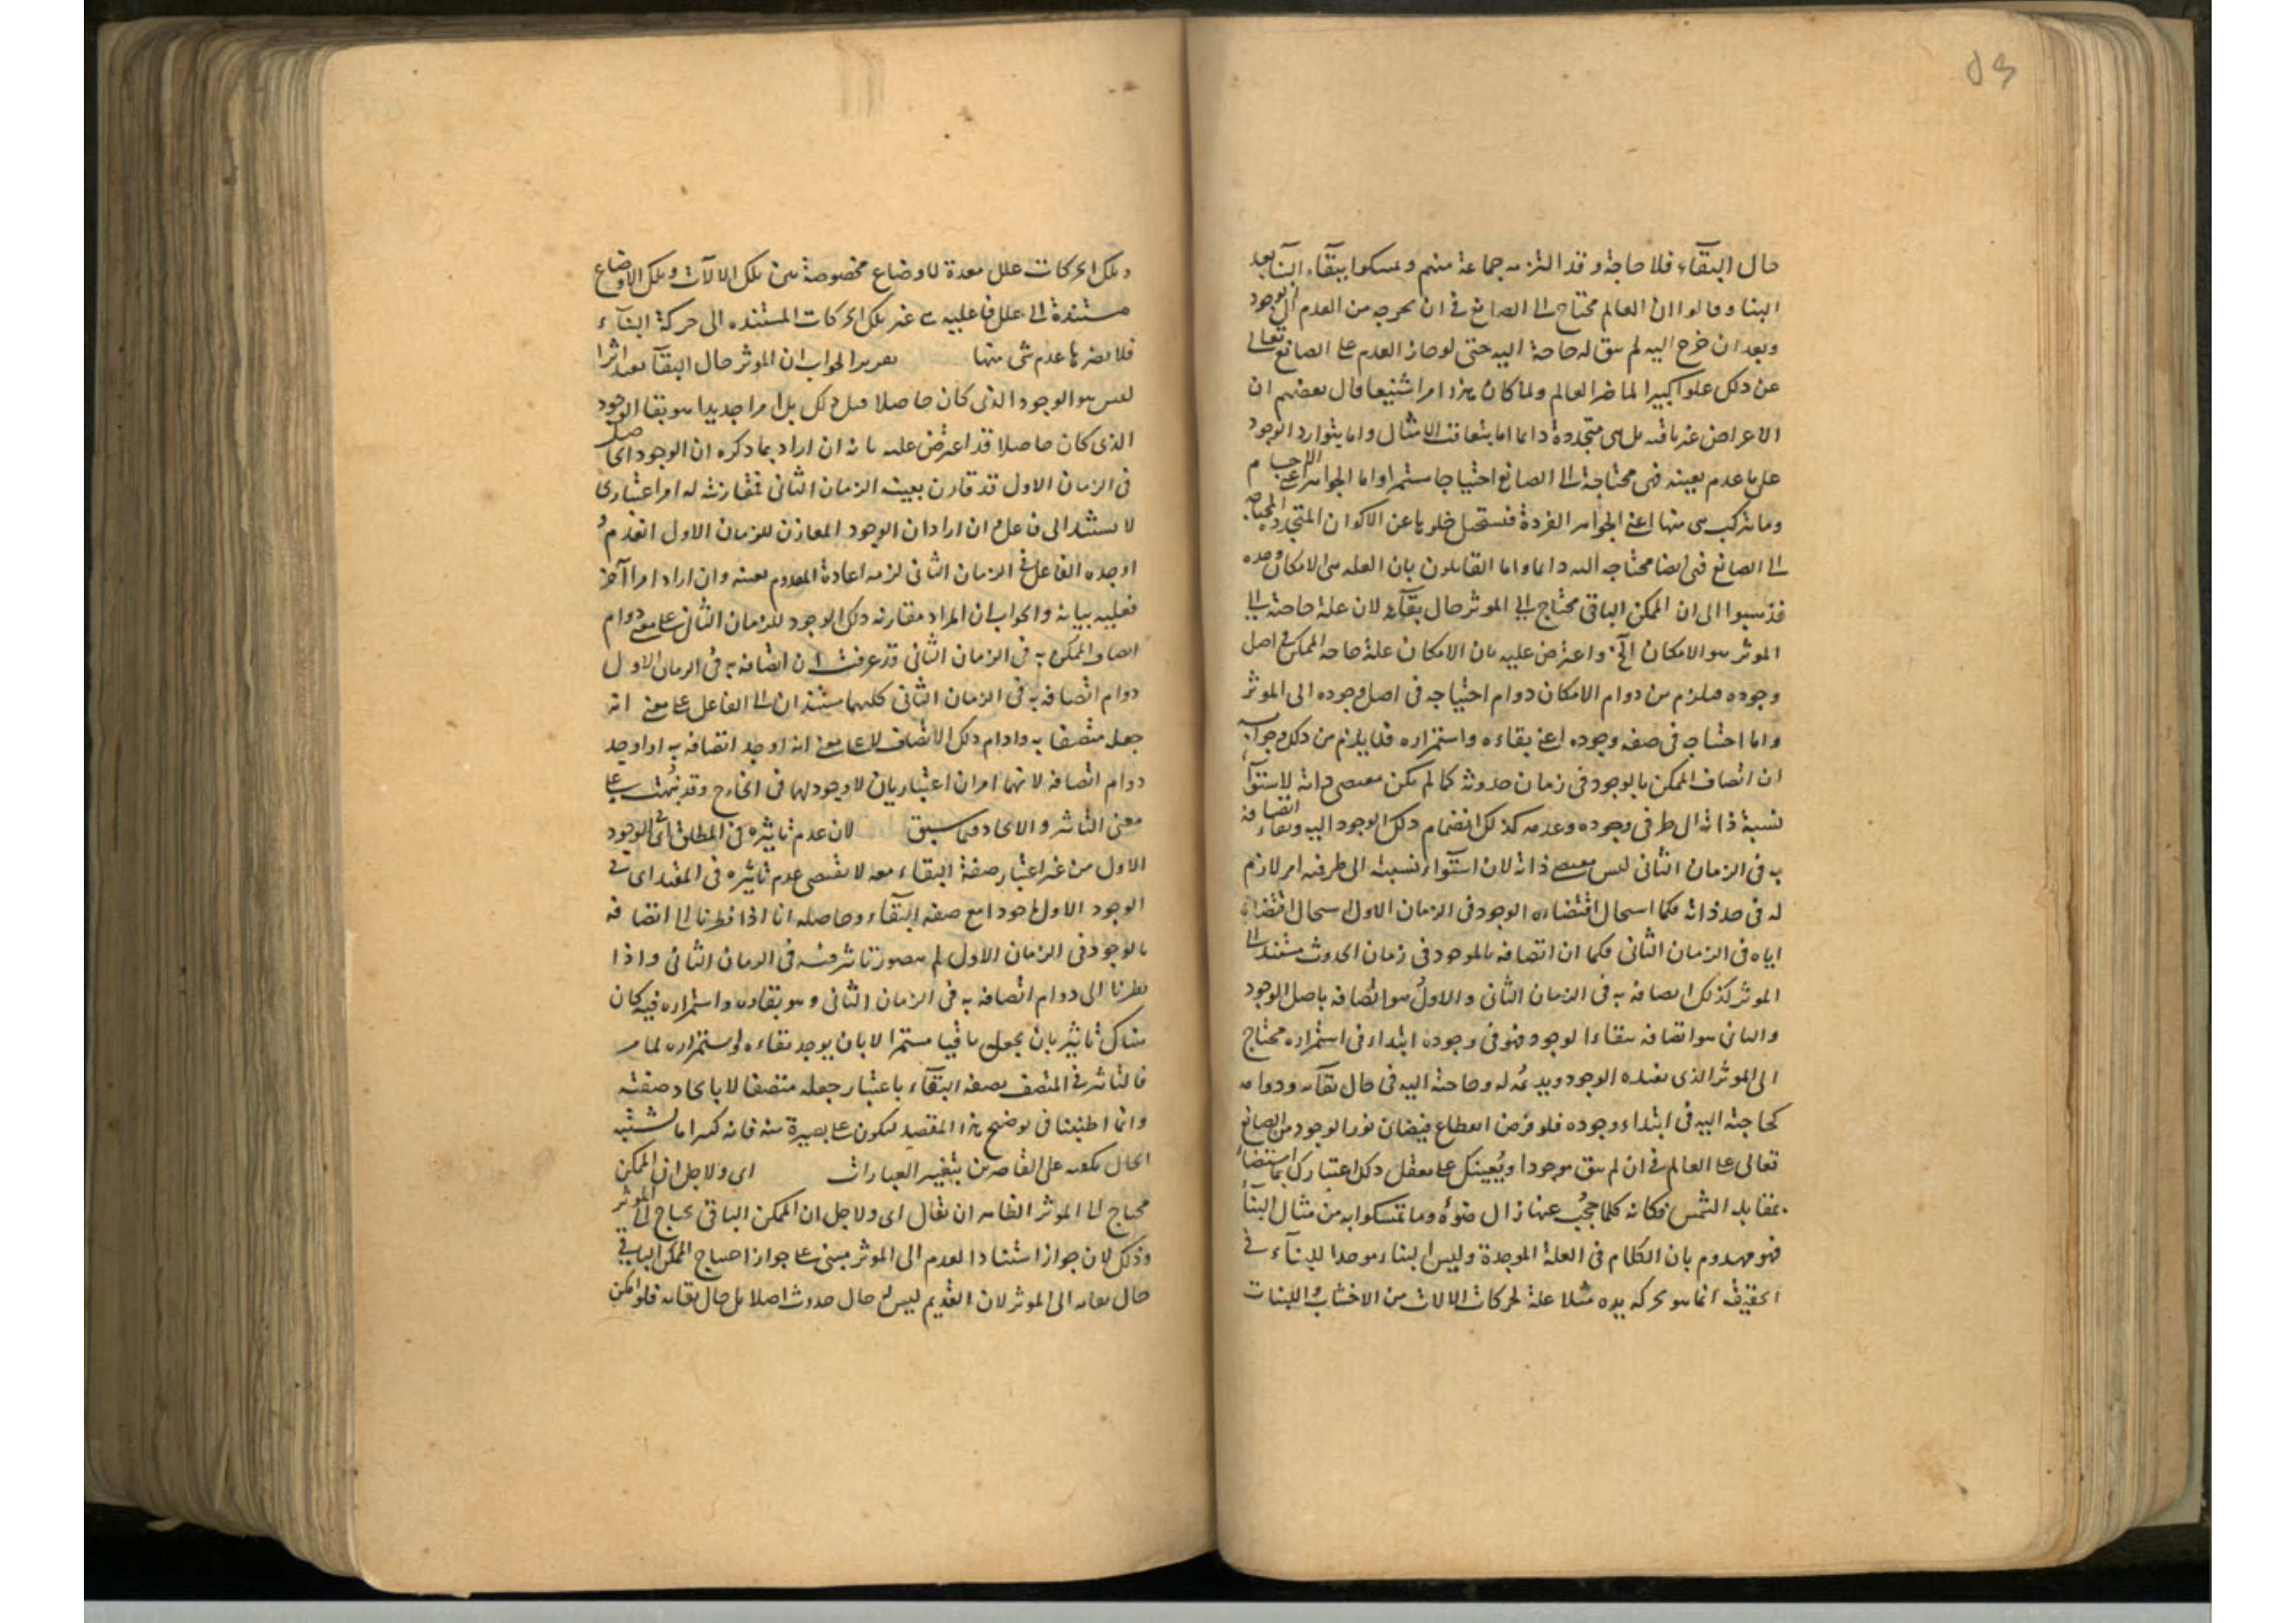 حال البقاء فلا حاجة وقد التزمه جماعة منهم وتمسكوا ببقاء البناء بعد
البنا وقالوا ان العالم محتاج الى الصانع في ان يخرجه من العدم الى الوجود
وبعد ان خرج اليه لم يبق له حاجة اليه حتى لو جاز العدم على الصانع تعالى
عن ذلك علوا كبيرا لما ضر العالم ولما كان هذا امرا شنيعا قال بعضهم ان
الاعراض غير باقية بل هي متجددة دائما اما بتعاقب الامثال واما بتوارد الوجود
على ما عدم بعينه فهي محتاجة الى الصانع احتياجا مستمرا واما الجواهر اعني الاجسام
وما يتركب هي منها اعني الجواهر الفردة فيستحيل خلوها عن الاكوان المتجددة المحتاجة
الى الصانع فهي ايضا محتاجة اليه دائما واما القايلون بان العلة هي الامكان وحده
فذهبوا الى ان الممكن الباقي محتاج الى الموثر حال بقائه لان علة حاجته الى
الموثر هو الامكان الخ واعترض عليه بان الامكان علة حاجة الممكن في اصل
وجوده فيلزم من دوام الامكان دوام احتياجه في اصل وجوده الى الموثر
واما احتياجه في صفة وجوده اعني بقاءه واستمراره فلا يلزم من ذلك وجوابه
ان اتصاف الممكن بالوجود في زمان حدوثه كما لم يكن مقتضى ذاته لاستواء
نسبة ذاته الى طرفي وجوده وعدمه كذلك انضمام ذلك الوجود اليه وبقاء اتصافه
به في الزمان الثاني ليس مقتضى ذاته لان استواء نسبته الى طرفيه امر لازم
له في حد ذاته فكما استحال اقتضاءه الوجود في الزمان الاول استحال اقتضاءه
اياه في الزمان الثاني فكما ان اتصافه بالوجود في زمان الحدوث مستند الى
الموثر كذلك اتصافه به في الزمان الثاني والاول هو اتصافه باصل الوجود
والثاني هو اتصافه ببقاء الوجود فهو في وجوده ابتداء وفي استمراره محتاج
الى الموثر الذي يفيده الوجود ويديمه له وحاجته اليه في حال بقائه ودوامه
كحاجته اليه في ابتداء وجوده فلو فرض انقطاع فيضان نور الوجود من الصانع
تعالى على العالم في ان لم يبق موجودا ويعينك على تعقل ذلك اعتبارك بما استضاء
بمقابلة الشمس فكانه كلما حجب عنها زال ضوئه وما تمسكوا به من مثال البناء
فهو مهدوم بان الكلام في العلة الموجدة وليس البناء موجدا للبناء في
الحقيقة انما هو بحركة يده مثلا علة لحركات الالات من الاخشاب واللبنات
وتلك الحركات علل معدة لاوضاع مخصوصة بين تلك الالات وتلك الاوضاع
مستندة الى علل فاعلية هي غير تلك الحركات المستنده الى حركة البناء
فلا يضرها عدم شي منها تقرير الجواب ان الموثر حال البقاء يفيد اثرا
ليس هو الوجود الذي كان حاصلا قبل ذلك بل امرا جديدا هو بقا الوجود
الذي كان حاصلا قد اعترض عليه بانه ان اراد بما ذكره ان الوجود الحاصل
في الزمان الاول قد قارن بعينه الزمان الثاني فمقارنته له امر اعتباري
لا يستند الى فاعل وان اراد ان الوجود المقارن للزمان الاول انعدم و
اوجده الفاعل في الزمان الثاني لزمه اعادة المعدوم بعينه وان اراد امرا آخر
فعليه بيانه والجواب ان المراد مقارنة ذلك الوجود للزمان الثاني على معنى دوام
اتصاف الممكن به في الزمان الثاني وقد عرفت ان اتصافه به في الزمان الاول
دوام اتصافه به في الزمان الثاني كليهما مستندان الى الفاعل على معنى انه
جعله متصفا به وادام ذلك الاتصاف لا على معنى انه اوجد اتصافه به او اوجد
دوام اتصافه لانهما امران اعتباريان لا وجود لهما في الخارج وقد نبهت على
معنى التاثير والايجاد فيما سبق لان عدم تاثيره في المطلق اي في الوجود
الاول من غير اعتبار صفة البقاء معه لا يقتضي عدم تاثيره في المقيد اي في
الوجود الاول ماخوذا مع صفة البقاء وحاصله انا اذا نظرنا الى اتصافه
بالوجود في الزمان الاول لم يتصور تاثير فيه في الزمان الثاني واذا
نظرنا الى دوام اتصافه به في الزمان الثاني وهو بقاؤه واستمراره فيه كان
هناك تاثير بان يجعل باقيا مستمرا لا بان يوجد بقاءه واستمراره لما مر
فالتاثير في المتصف بصفة البقاء باعتبار جعله متصفا لا بايجاد صفته
وانما اطنبنا في توضيح هذا المقصد ليكون على بصيرة منه فانه كثيرا ما يشتبه
الحال بكهنه على القاصرين بتغيير العبارات اي ولاجل ان الممكن
محتاج الى الموثر الظاهر ان يقال اي ولاجل ان الممكن الباقي يحتاج الى الموثر
وذلك لان جواز استناد القديم الى الموثر مبني على جواز احتياج الممكن الباقي
حال بقائه الى الموثر لان القديم ليس له حال حدوث اصلا بل حال بقائه فلو امكن